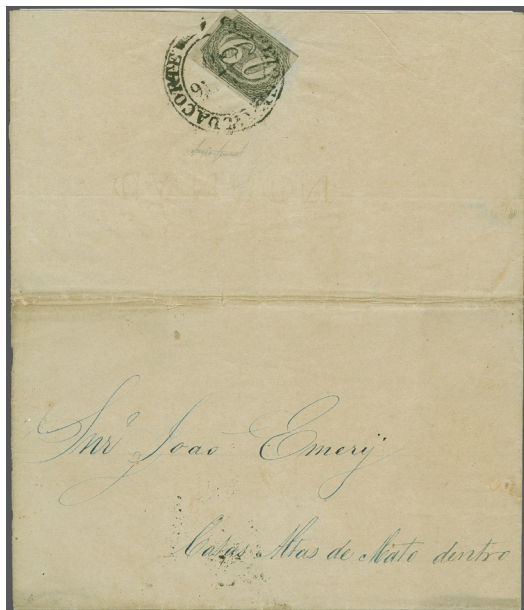 60
DA CORTE
Snr. João Emerÿ
Catas Altas de Mato dentro